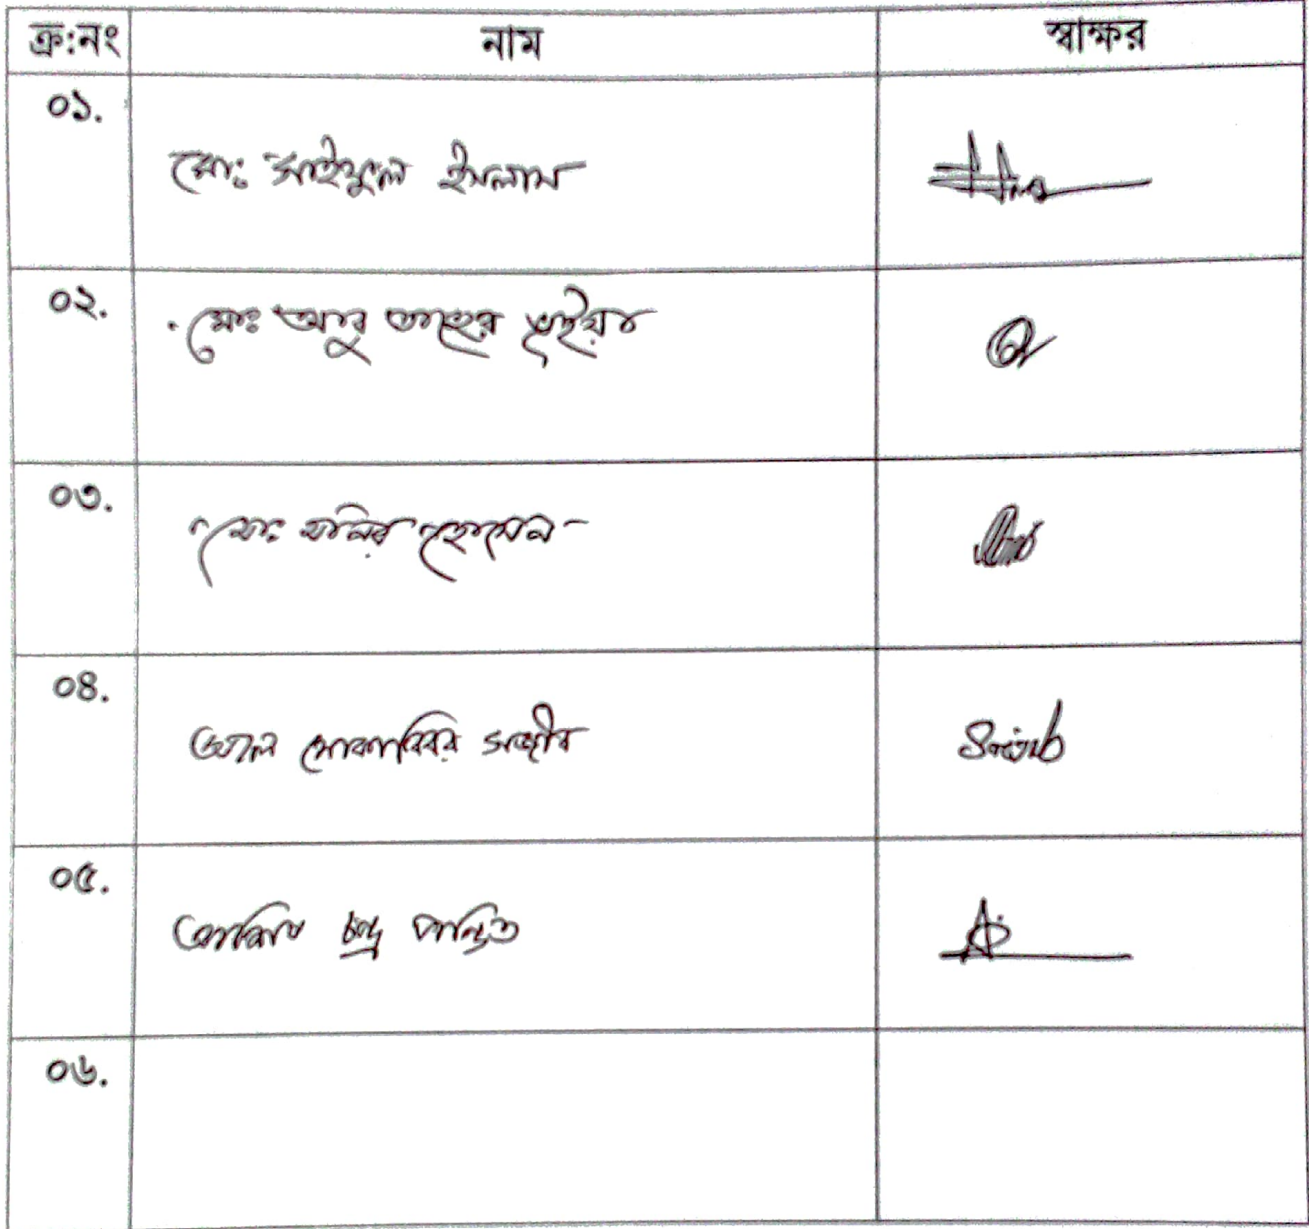 ক্র:নং নাম স্বাক্ষর
০১. মো: সাইফুল ইসলাম
০২. মোঃ আবু তাহের ভূইয়া
০৩. মোঃ মনির হোসেন
০৪. আল মোকাব্বির সজীব Sajib
০৫. চন্দ্র পন্ডিত
০৬.